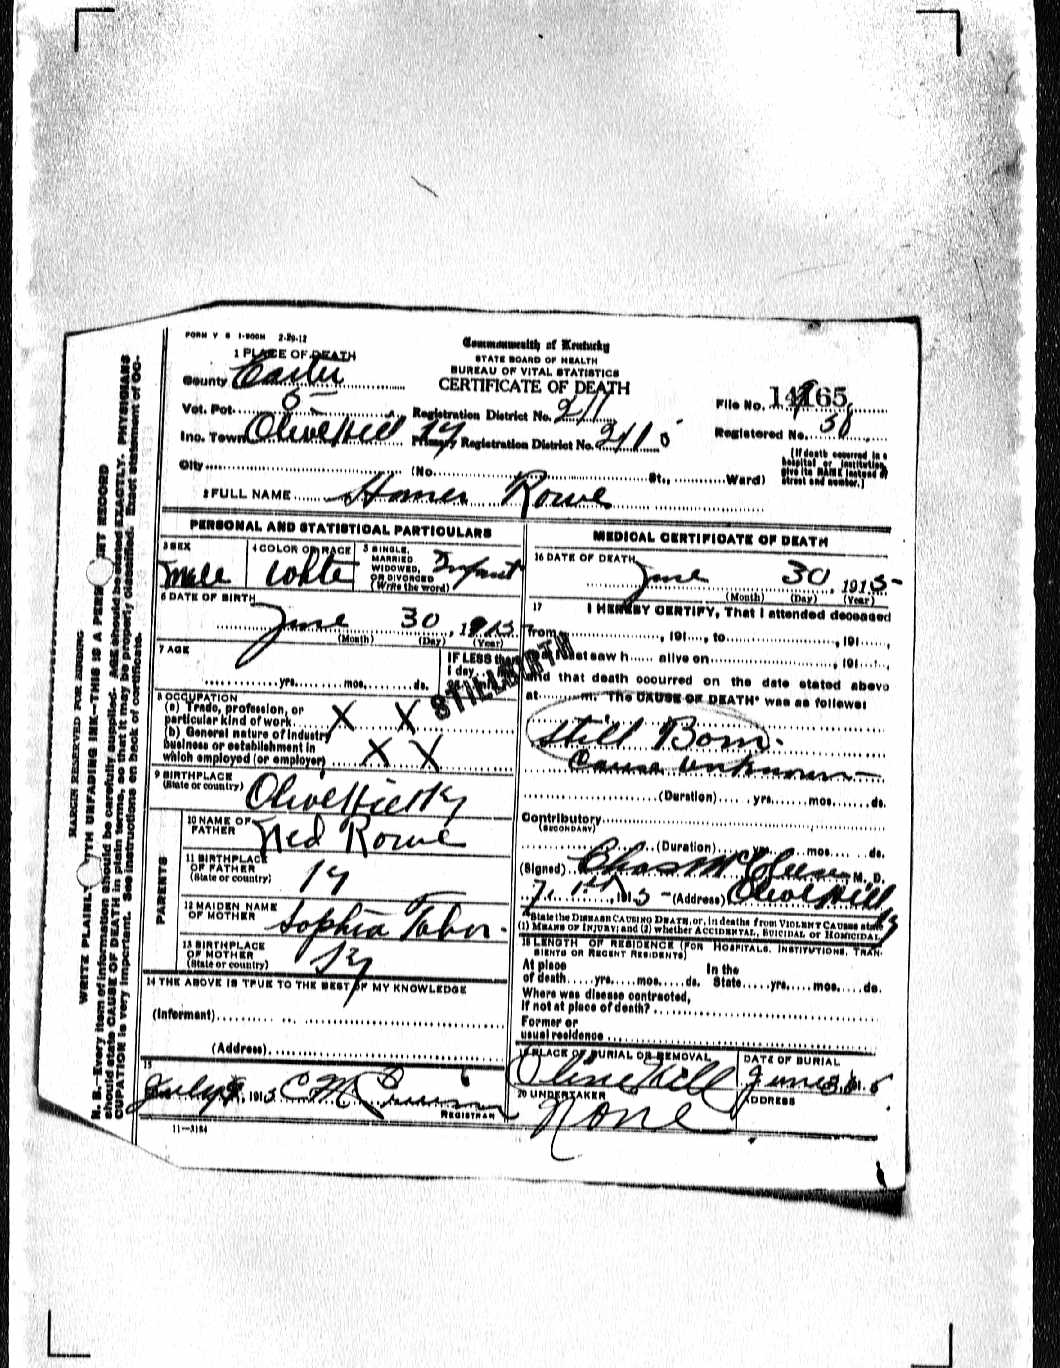 FORM V S 1-500M 2-29-12
Commonwealth of Kentucky
STATE BOARD OF HEALTH
BUREAU OF VITAL STATISTICS
CERTIFICATE OF DEATH
1 PLACE OF DEATH
County Carter
Vot. Pct. 5
Inc. Town Olive Hill Ky
Registration District No. 211
Primary Registration District No. 2115
File No. 14165
Registered No. 58
[If death occurred in a hospital or institution, give its NAME instead of street and number.]
City (No. St., Ward)
2 FULL NAME Homer Rowe
PERSONAL AND STATISTICAL PARTICULARS
3 SEX
Male
4 COLOR OR RACE
White
5 SINGLE, MARRIED, WIDOWED, OR DIVORCED (Write the word)
Infant
6 DATE OF BIRTH
June 30, 1915
(Month) (Day) (Year)
7 AGE
yrs. mos. ds.
IF LESS than
1 day
STILLBIRTH
8 OCCUPATION
(a) Trade, profession, or
particular kind of work X X
(b) General nature of industry
business or establishment in
which employed (or employer) X X
9 BIRTHPLACE
(State or country) Olive Hill Ky
PARENTS
10 NAME OF FATHER Ned Rowe
11 BIRTHPLACE OF FATHER (State or country) Ky
12 MAIDEN NAME OF MOTHER Sophia Tabor
13 BIRTHPLACE OF MOTHER (State or country) Ky
14 THE ABOVE IS TRUE TO THE BEST OF MY KNOWLEDGE
(Informant)
(Address)
15
July 1915 C M
REGISTRAR
11-3184
MEDICAL CERTIFICATE OF DEATH
16 DATE OF DEATH
June 30, 1915
(Month) (Day) (Year)
17 I HEREBY CERTIFY, That I attended deceased
from , 191 , to , 191 ,
that I last saw h alive on , 191 ,
and that death occurred on the date stated above
at m. The CAUSE OF DEATH* was as follows:
Still Born.
Cause unknown
(Duration) yrs. mos. ds.
Contributory
(SECONDARY)
(Duration) yrs. mos. ds.
(Signed) Chas M. D.
7. 1st, 1915 (Address) Olive Hill Ky
*State the DISEASE CAUSING DEATH, or, in deaths from VIOLENT CAUSES state
(1) MEANS OF INJURY; and (2) whether ACCIDENTAL, SUICIDAL OR HOMICIDAL.
18 LENGTH OF RESIDENCE (FOR HOSPITALS, INSTITUTIONS, TRAN-
SIENTS OR RECENT RESIDENTS)
At place
of death yrs. mos. ds.
In the
State yrs. mos. ds.
Where was disease contracted,
if not at place of death?
Former or
usual residence
19 PLACE OF BURIAL OR REMOVAL
Olive Hill
DATE OF BURIAL
June 30, 1915
20 UNDERTAKER
None
ADDRESS
MARGIN RESERVED FOR BINDING
WRITE PLAINLY WITH UNFADING INK—THIS IS A PERMANENT RECORD
N. B.—Every item of information should be carefully supplied. AGE should be stated EXACTLY. PHYSICIANS
should state CAUSE OF DEATH in plain terms, so that it may be properly classified. Exact statement of OC-
CUPATION is very important. See instructions on back of certificate.